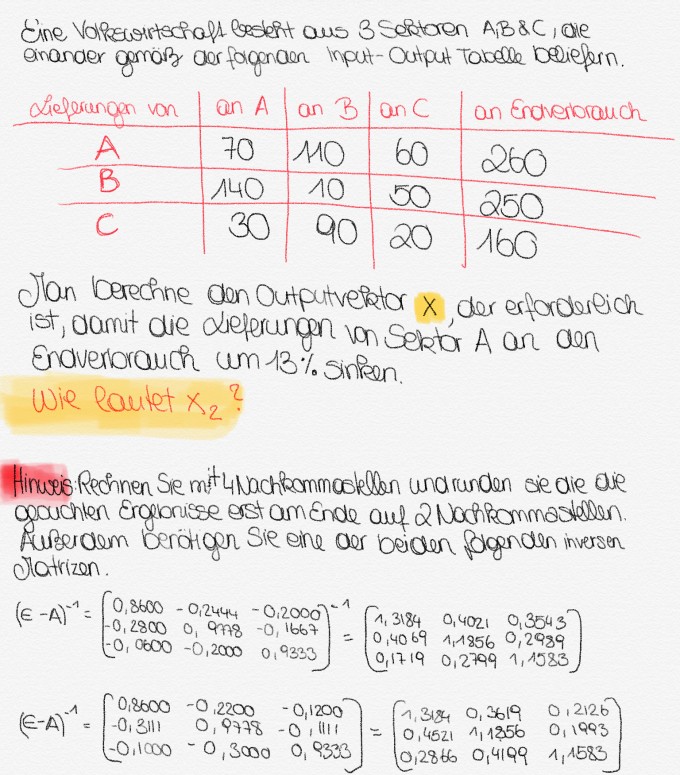 Eine Volkswirtschaft besteht aus 3 Sektoren A,B & C, die
einander gemäß der folgenden Input-Output Tabelle beliefern.
Lieferungen von an A an B an C an Endverbrauch
A 70 110 60 260
B 140 10 50 250
C 30 90 20 160
Man berechne den Outputvektor x, der erforderlich
ist, damit die Lieferungen von Sektor A an den
Endverbrauch um 13% sinken.
Wie lautet x₂?
Hinweis: Rechnen Sie mit 4 Nachkommastellen und runden sie die die
gesuchten Ergebnisse erst am Ende auf 2 Nachkommastellen.
Außerdem benötigen Sie eine der beiden folgenden inversen
Matrizen.
(E-A)⁻¹ = [0,8600 -0,2444 -0,2000
-0,2800 0,9778 -0,1667
-0,0600 -0,2000 0,9333]⁻¹ = [1,3184 0,4021 0,3543
0,4069 1,1856 0,2989
0,1719 0,2799 1,1583]
(E-A)⁻¹ = [0,8600 -0,2200 -0,1200
-0,3111 0,9778 -0,1111
-0,1000 -0,3000 0,9333] = [1,3184 0,3619 0,2126
0,4521 1,1856 0,1993
0,2866 0,4199 1,1583]